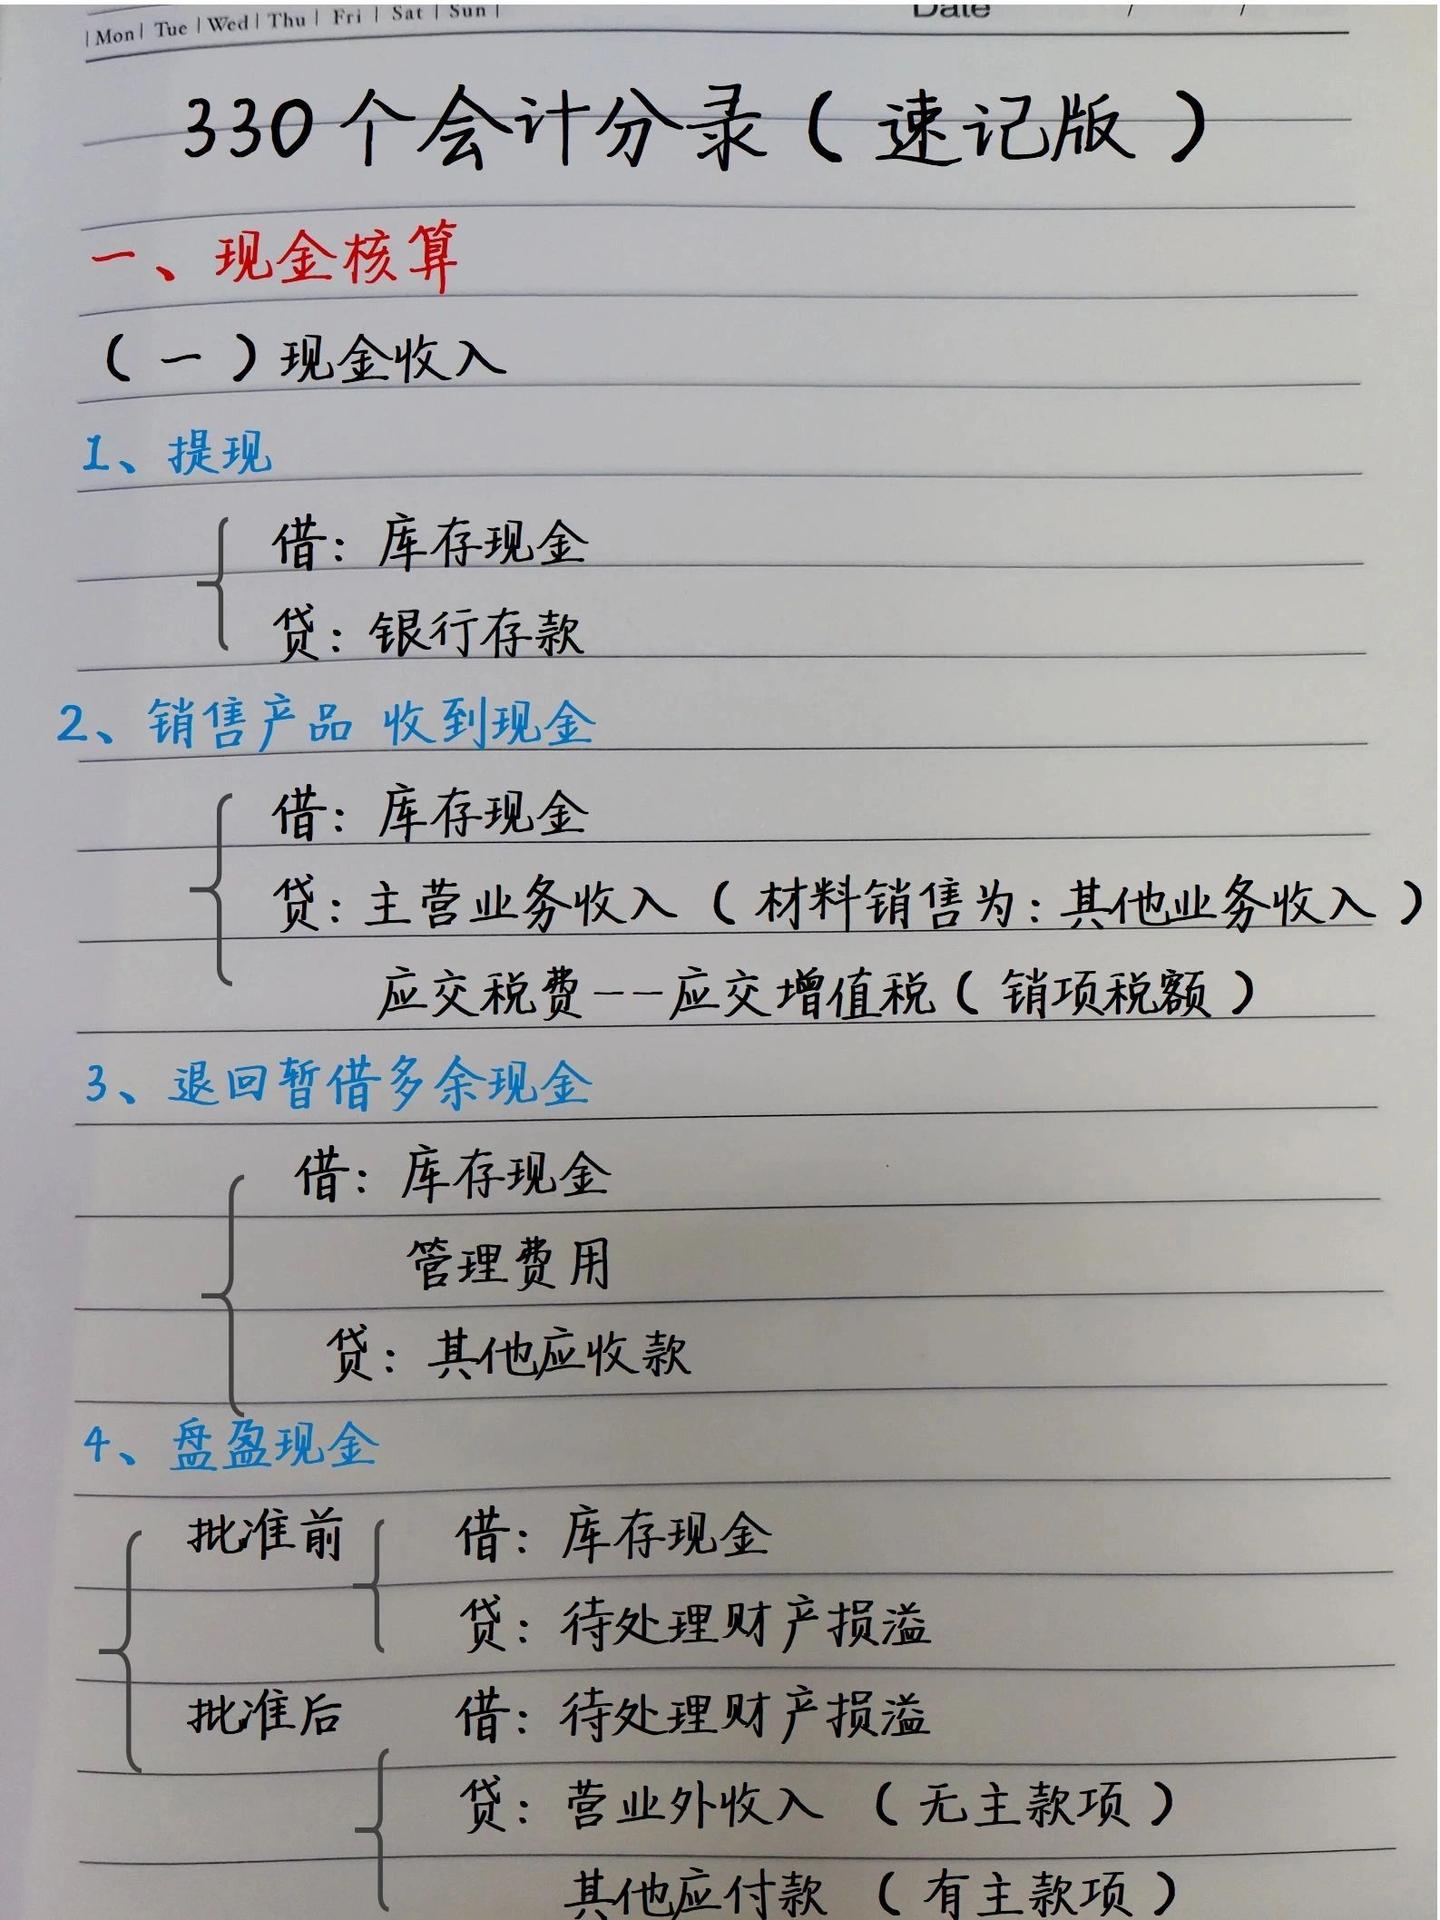 |Mon| Tue |Wed| Thu | Fri | Sat | Sun |
Date / /
330个会计分录(速记版)
一、现金核算
(一)现金收入
1、提现
借：库存现金
贷：银行存款
2、销售产品 收到现金
借：库存现金
贷：主营业务收入(材料销售为：其他业务收入)
应交税费--应交增值税(销项税额)
3、退回暂借多余现金
借：库存现金
管理费用
贷：其他应收款
4、盘盈现金
批准前 借：库存现金
贷：待处理财产损溢
批准后 借：待处理财产损溢
贷：营业外收入 (无主款项)
其他应付款 (有主款项)